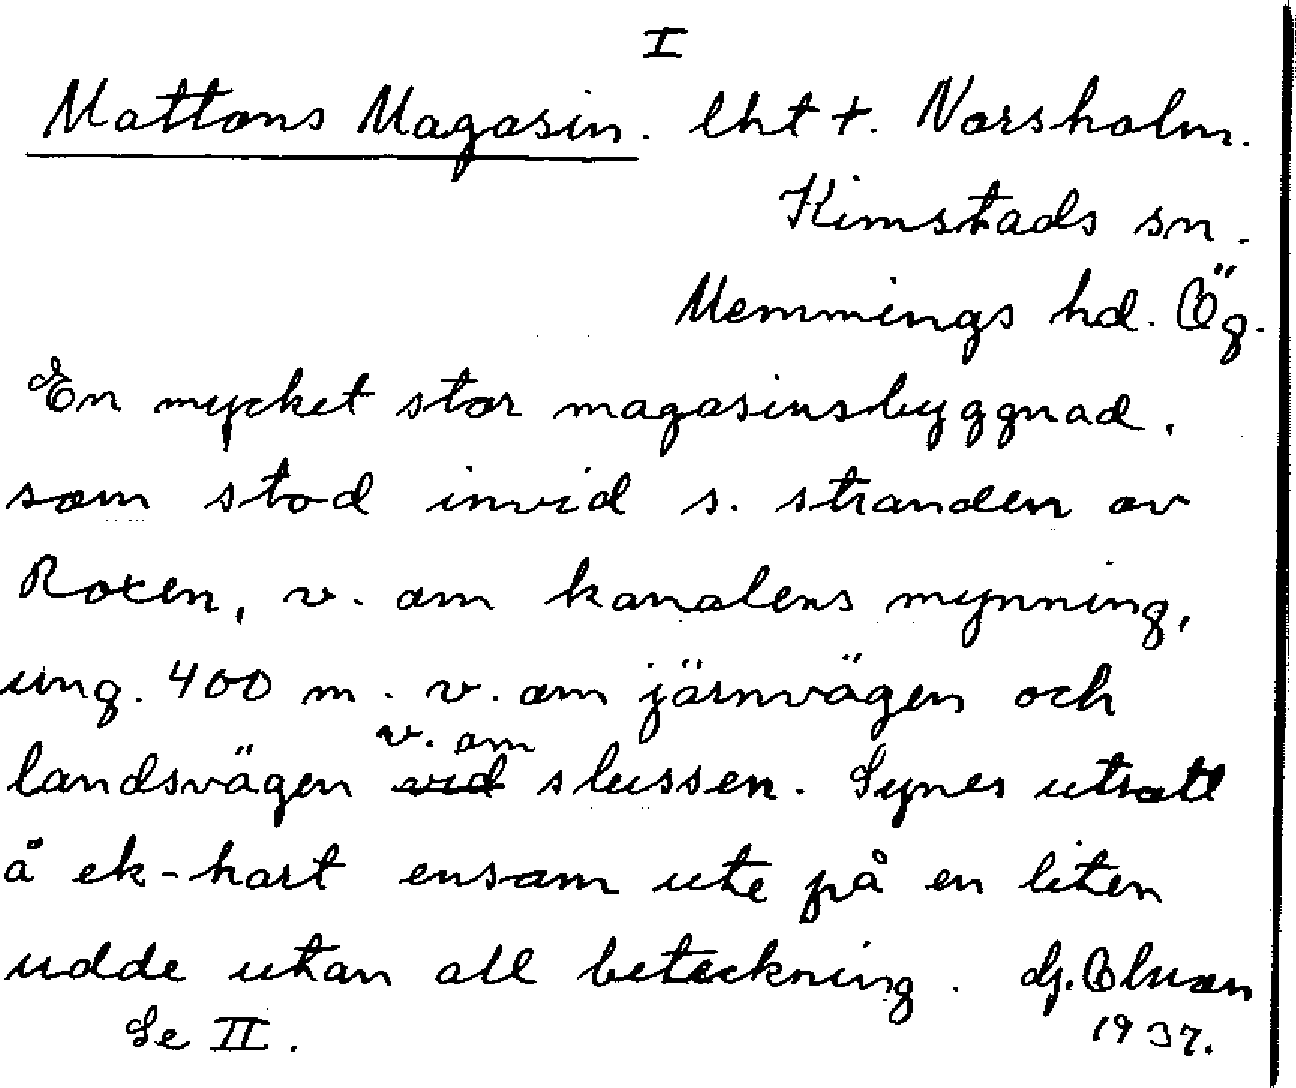 I
Mattons Magasin. lht †. Norsholm.
Kimstads sn.
Memmings hd. Ög.
En mycket stor magasinsbyggnad,
som stod invid s. stranden av
Roxen, v. om kanalens mynning,
ung. 400 m. v. om järnvägen och
v. om
landsvägen vid slussen. Synes utsatt
å ek-kart ensam ute på en liten
udde utan all beteckning.
Se II. 1937.